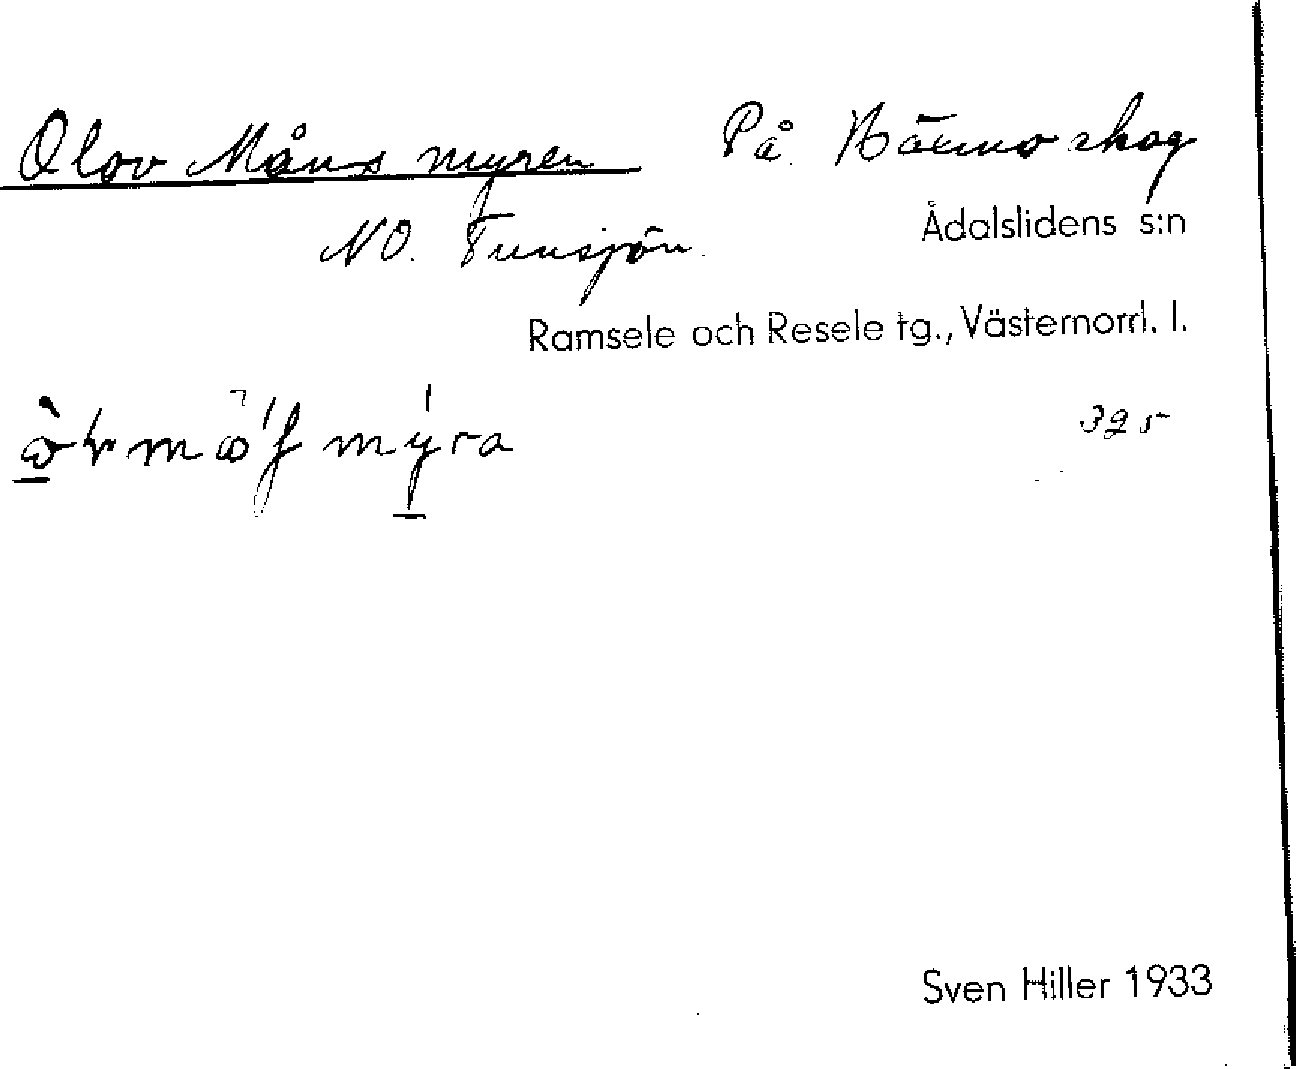 Olov Måns myren På Bäcmo skog
NO. Tunsjön.
Ådalslidens s:n
Ramsele och Resele tg., Västernorrl. l.
325
Sven Hiller 1933